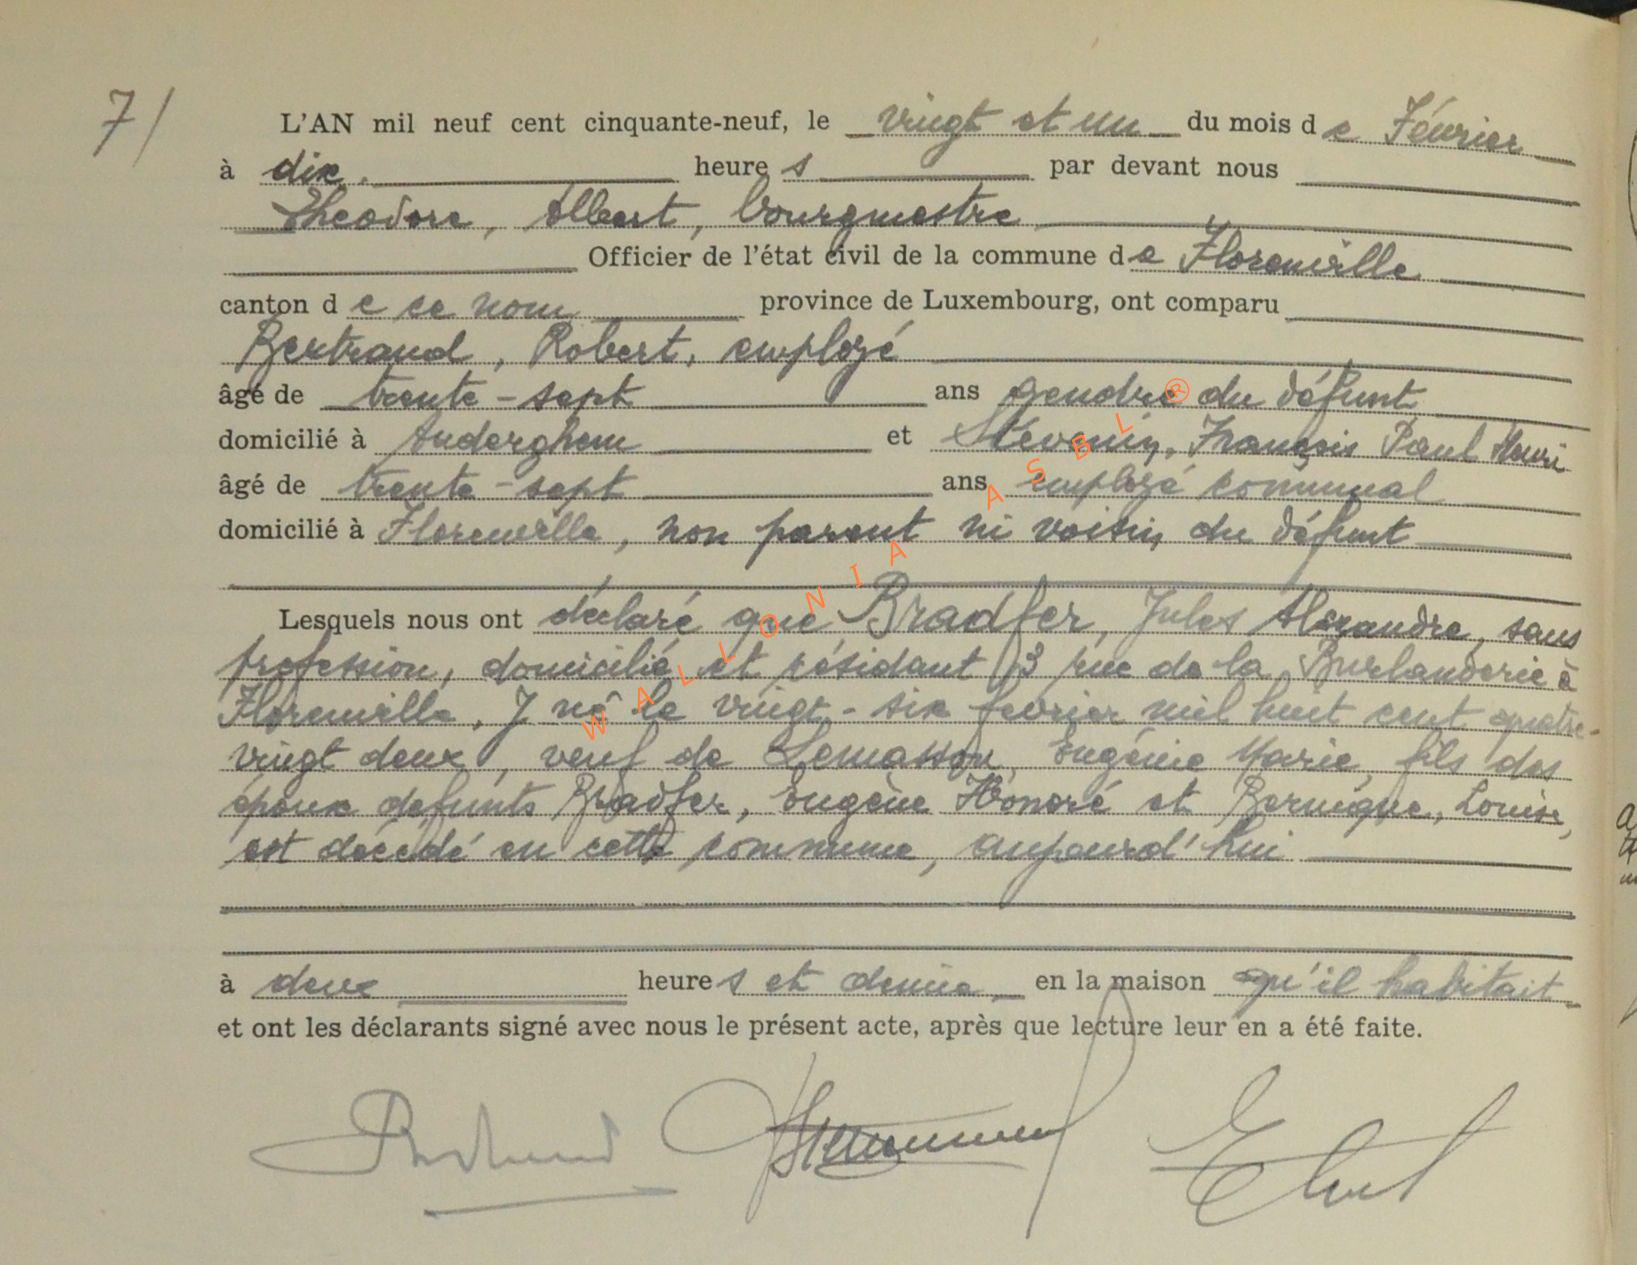 7/
L'AN mil neuf cent cinquante-neuf, le vingt et un du mois de Février
à dix. heures par devant nous
Théodore, Albert, bourgmestre
Officier de l'état civil de la commune de Florenville
canton de ce nom province de Luxembourg, ont comparu
Bertrand, Robert, employé
âgé de trente-sept ans gendre du défunt
domicilié à Auderghem et Stévenin, François Paul Henri
âgé de trente-sept ans employé communal
domicilié à Florenville, non parent ni voisin du défunt
Lesquels nous ont déclaré que Bradfer, Jules Alexandre, sans
profession, domicilié et résidant 3 rue de la Burlanderie à
Florenville, y né le vingt-six février mil huit cent quatre-
vingt deux, veuf de Lemasson, Eugénie Marie, fils des
époux défunts Bradfer, Eugène Honoré et Bernique, Louise,
est décédé en cette commune, aujourd'hui
à deux heures et demie en la maison qu'il habitait
et ont les déclarants signé avec nous le présent acte, après que lecture leur en a été faite.
WALLONIA ASBL ®